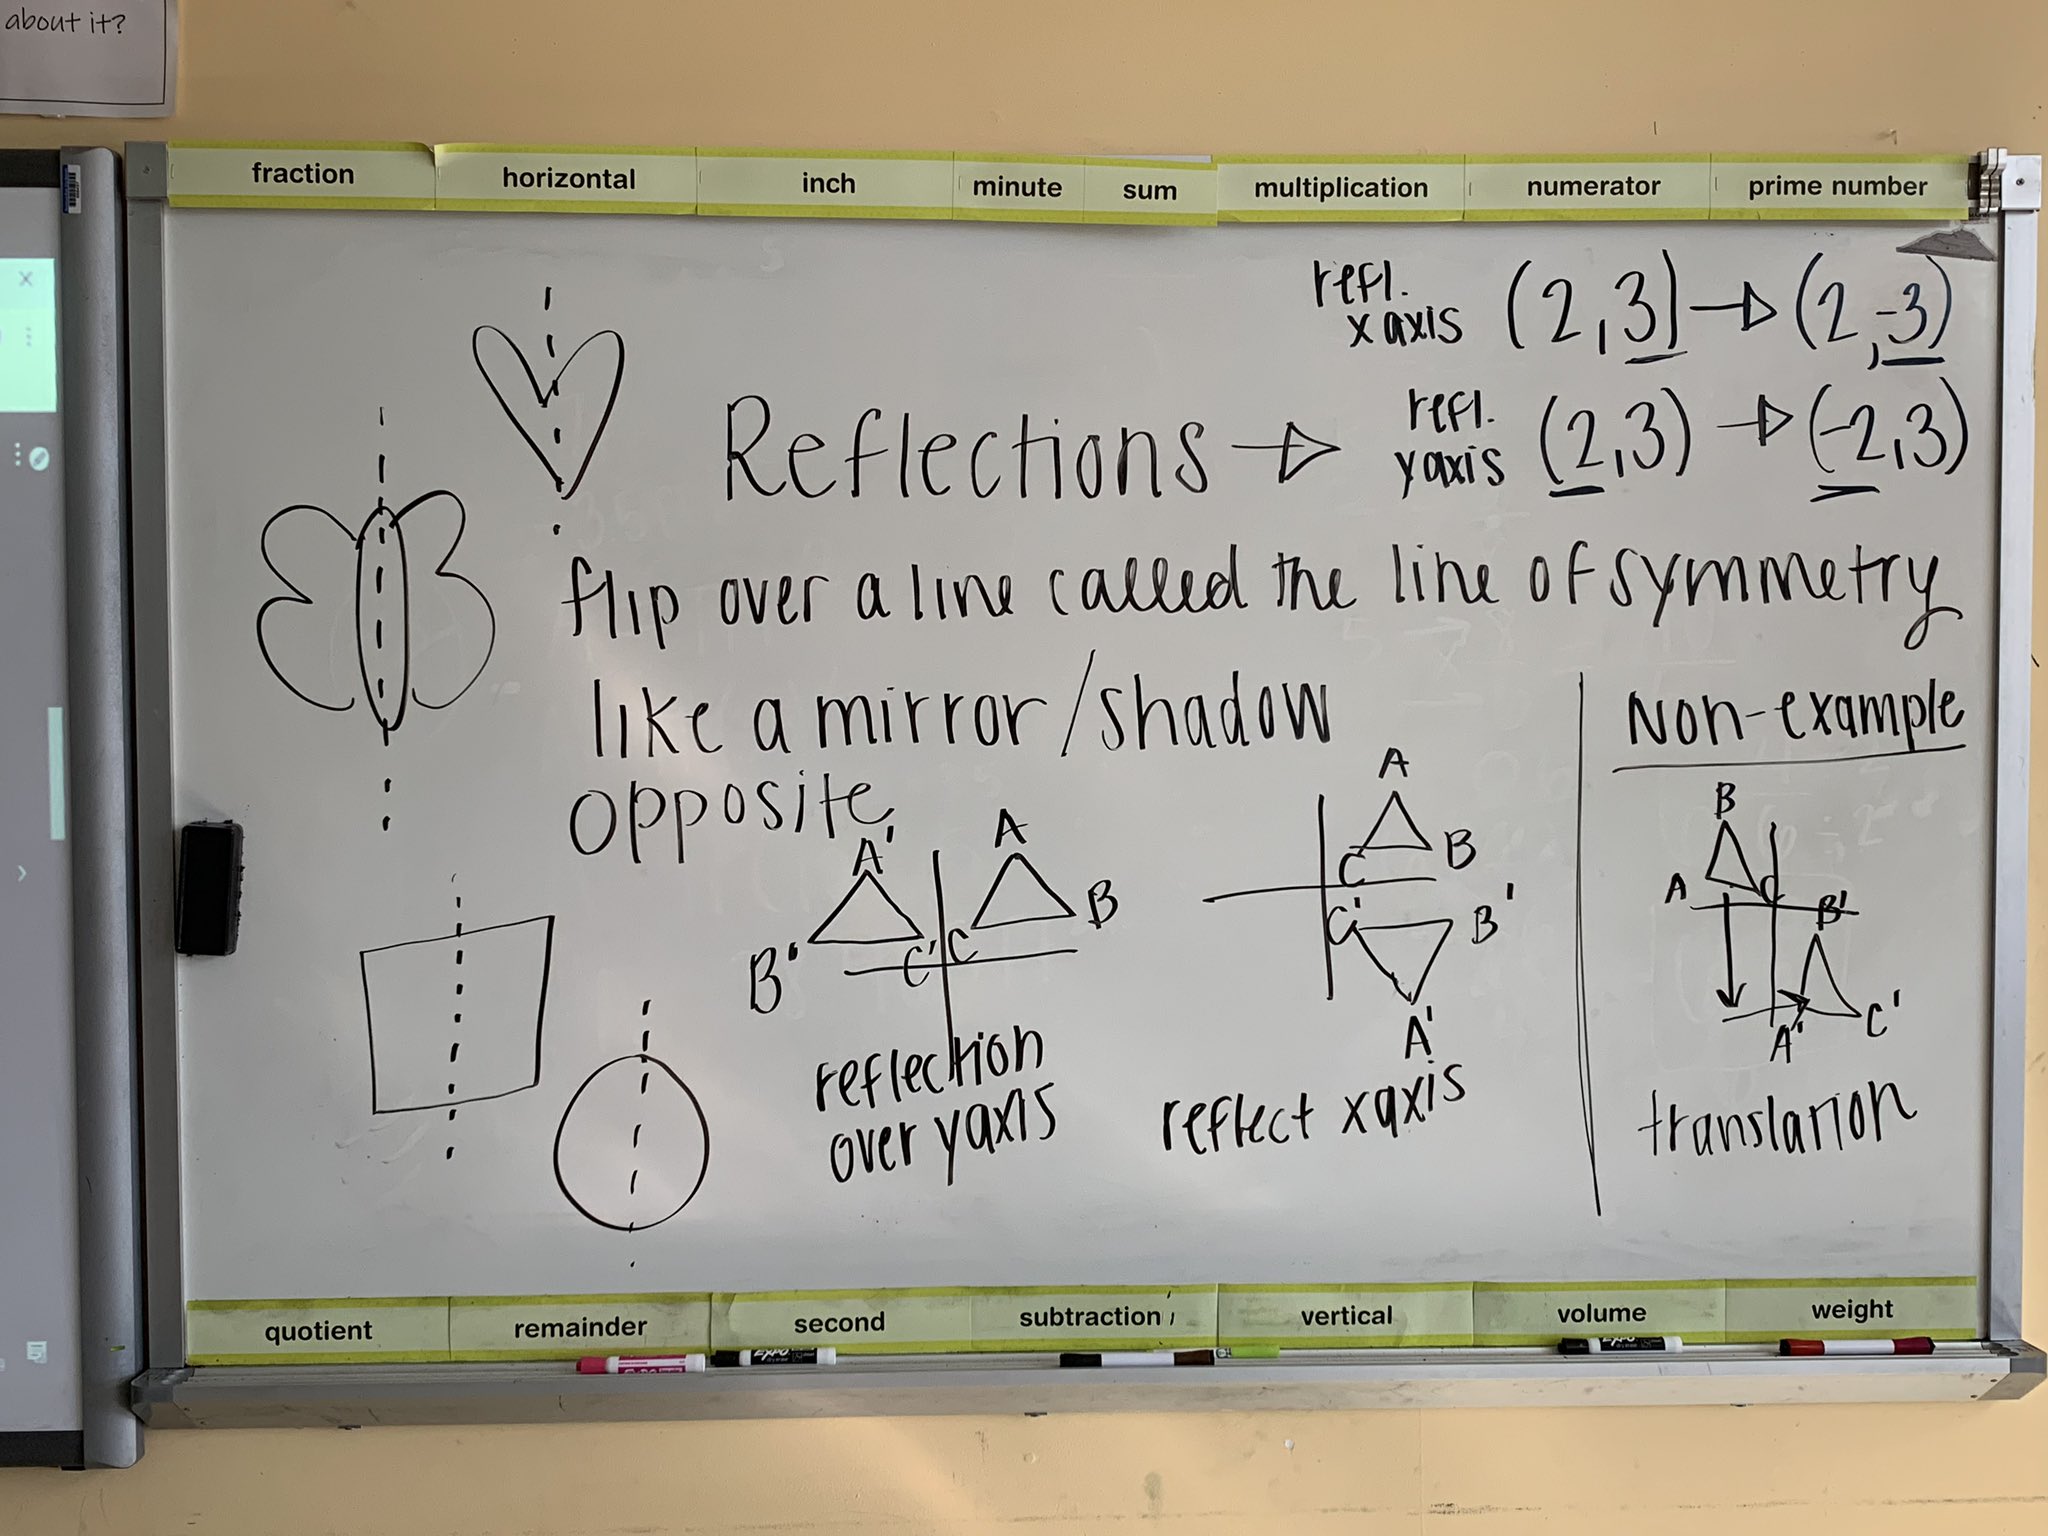 about it?
fraction horizontal inch minute sum multiplication numerator prime number
refl.
x axis (2,3) → (2,-3)
Reflections → refl.
y axis (2,3) → (-2,3)
flip over a line called the line of symmetry
like a mirror/shadow
opposite
Non-example
A' A
B' C' C B
reflection
over y axis
A
C B
C' B'
A'
reflect x axis
B
A C B'
A' C'
translation
quotient remainder second subtraction vertical volume weight
EXPO
EXPO
EXPO